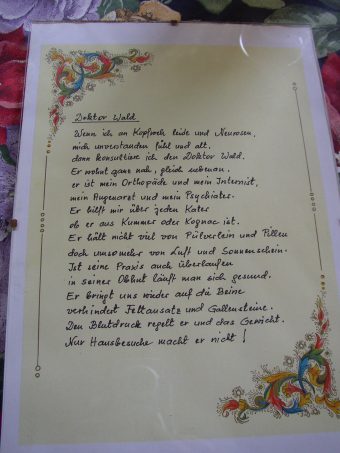 Doktor Wald
Wenn ich an Kopfweh leide und Neurosen,
mich unverstanden fühl und alt,
dann konsultiere ich den Doktor Wald.
Er wohnt ganz nah, gleich nebenan,
er ist mein Orthopäde und mein Internist,
mein Augenarzt und mein Psychiater.
Er hilft mir über jeden Kater
ob er aus Kummer oder Kognac ist.
Er hält nicht viel von Pülverlein und Pillen
doch umsomehr von Luft und Sonnenschein.
Ist seine Praxis auch überlaufen
in seiner Obhut läuft man sich gesund.
Er bringt uns wieder auf die Beine
verhindert Fettansatz und Gallensteine.
Den Blutdruck regelt er und das Gewicht.
Nur Hausbesuche macht er nicht!